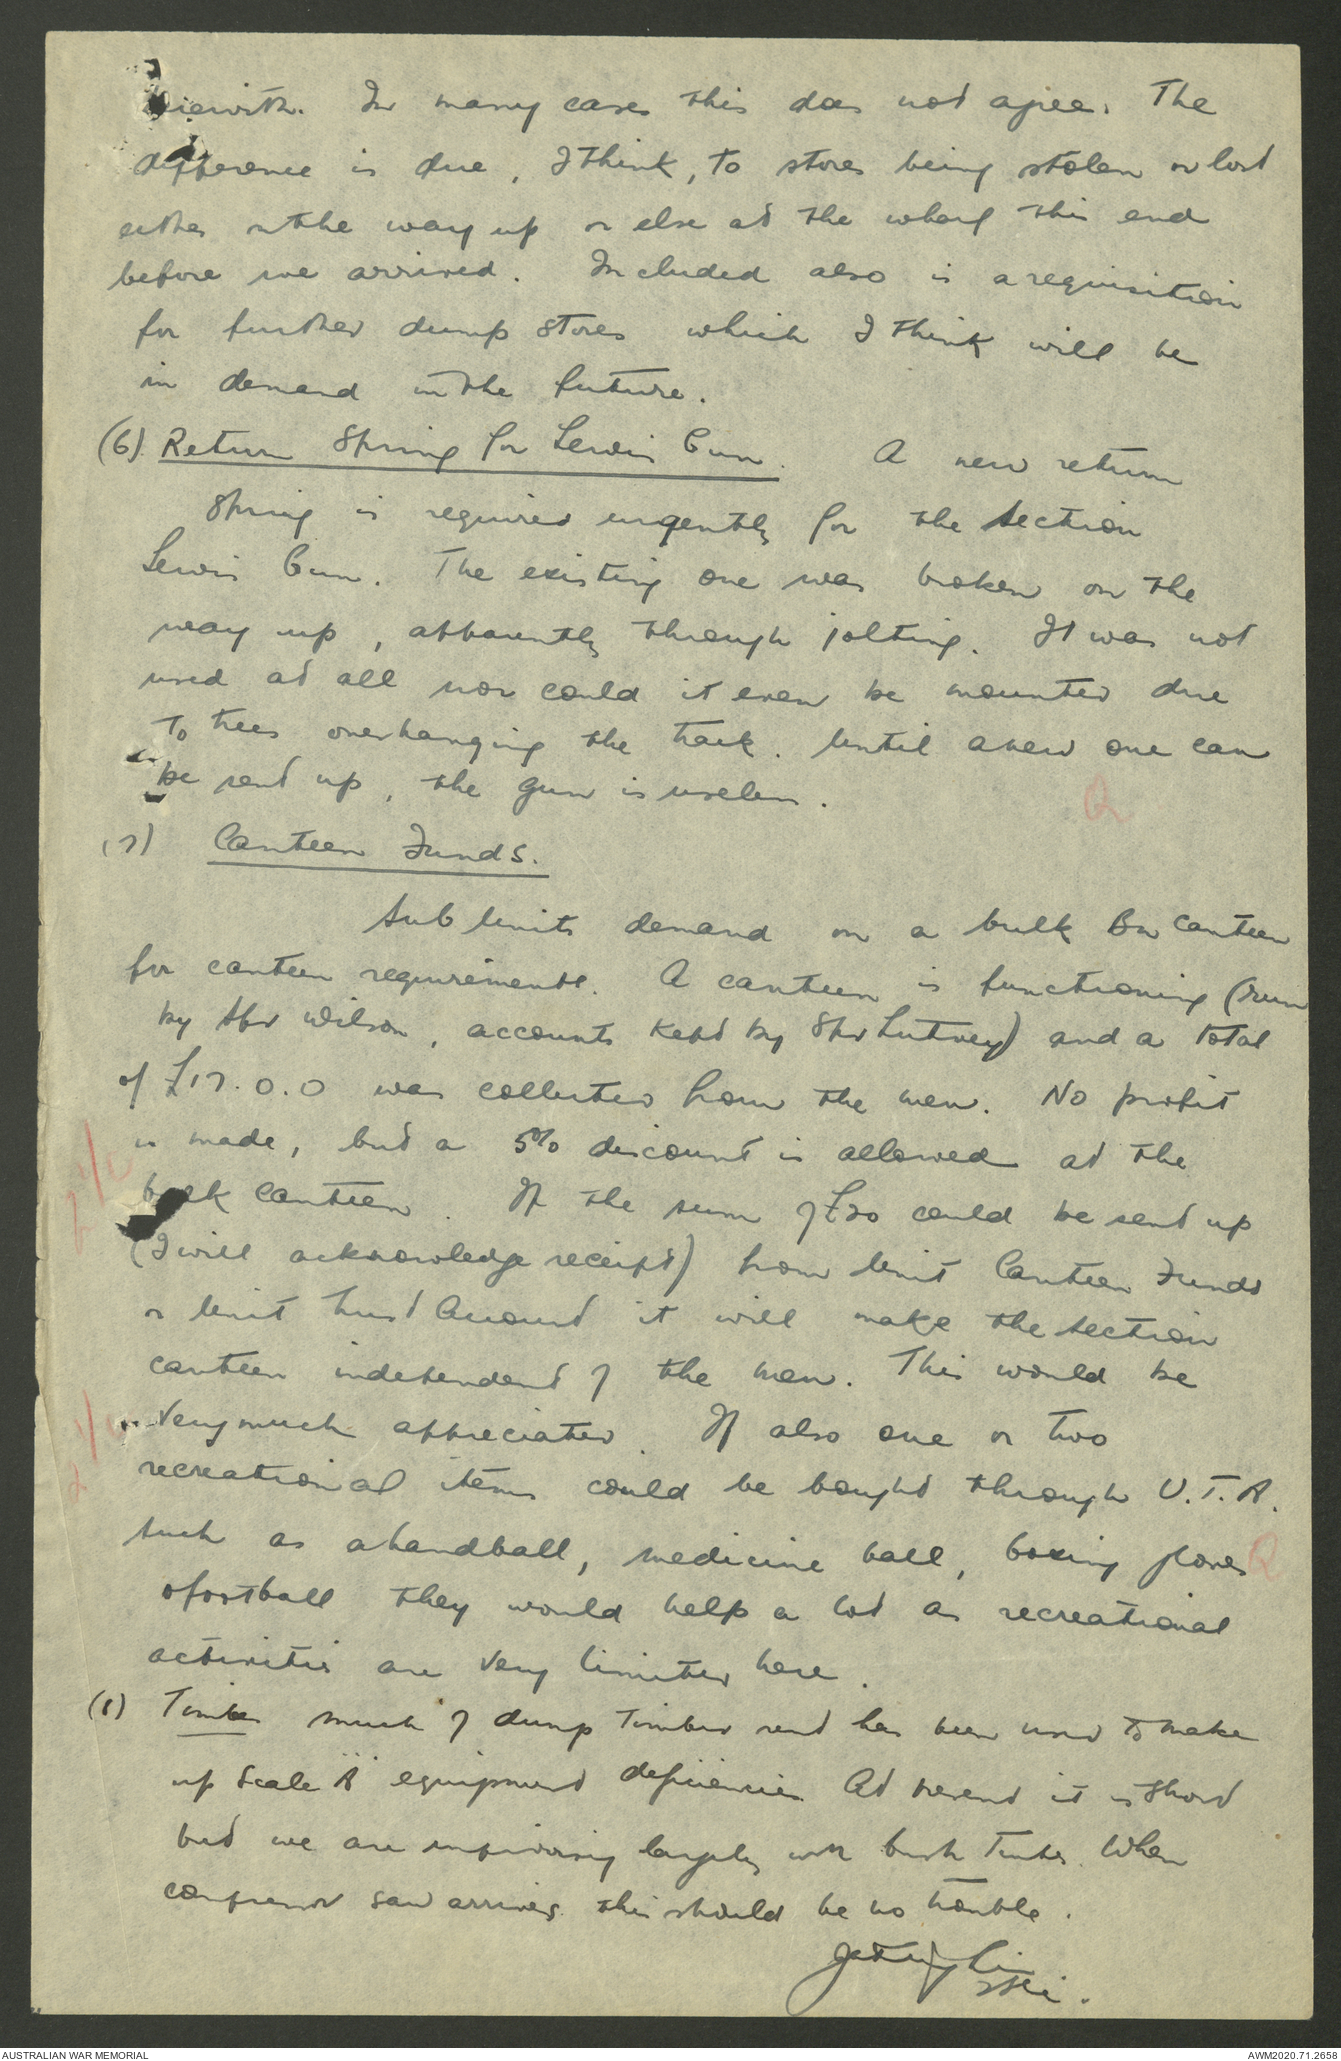 herewith. In many cases this does not agree. The
difference is due, I think, to stores being stolen or lost
either on the way up or else at the wharf this end
before we arrived. Included also is a requisition
for further dump stores which I think will be
in demand in the future.
(6) Return Spring for Lewis Gun. A new return
Spring is required urgently for the section
Lewis Gun. The existing one was broken on the
way up, apparently through jolting. It was not
used at all nor could it even be mounted due
to trees overhanging the track. Until a new one can
be sent up, the gun is useless.
Q
(7) Canteen Funds.
Sub Units demand on a bulk Bn Canteen
for canteen requirements. A canteen is functioning (run
by Spr Wilson, accounts kept by Spr Lutney) and a total
of £17.0.0 was collected from the men. No profit
is made, but a 5% discount is allowed at the
bulk Canteen. If the sum of £20 could be sent up
(I will acknowledge receipt) from Unit Canteen Funds
or Unit Trust Account it will make the section
canteen independent of the men. This would be
very much appreciated. If also one or two
recreational items could be bought through U.T.A.
such as a handball, medicine ball, boxing gloves Q
o football they would help a lot as recreational
activities are very limited here.
(8) Timber much of dump timber sent has been used to make
up Scale "A" equipment deficiencies At present it is short
but we are improvising largely with bush timber. When
compressor saw arrives this should be no trouble.
Lieut.
AUSTRALIAN WAR MEMORIAL
AWM2020.71.2658